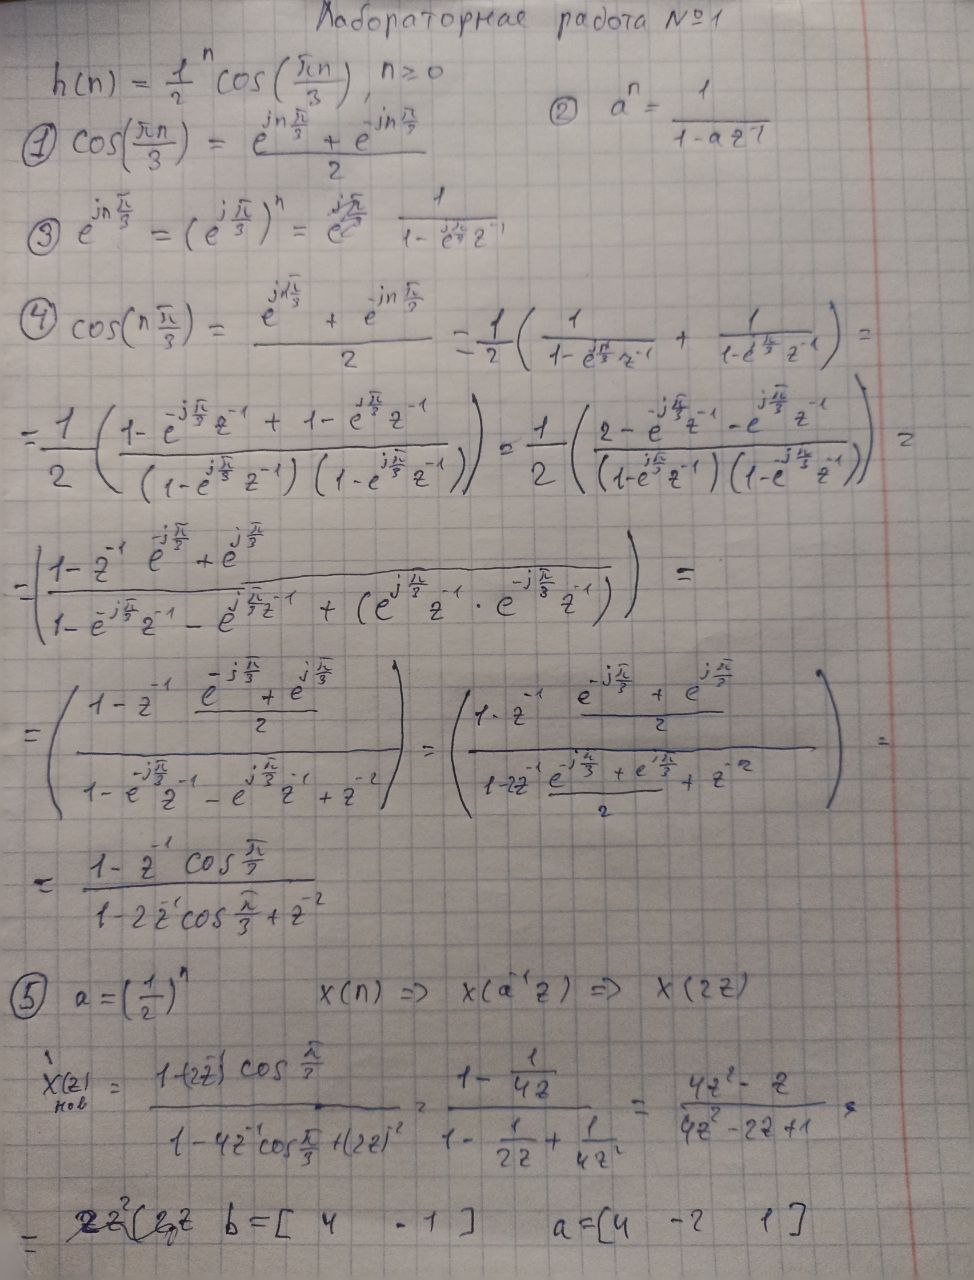 Лабораторная работа №1
h(n) = 1/2^n cos(πn/3), n ≥ 0
① cos(πn/3) = (e^{jnπ/3} + e^{-jnπ/3})/2
② a^n = 1/(1-az^{-1})
③ e^{jnπ/3} = (e^{jπ/3})^n = e^{jπ/3} 1/(1-e^{jπ/3}z^{-1})
④ cos(nπ/3) = (e^{jnπ/3} + e^{-jnπ/3})/2 = 1/2 (1/(1-e^{jπ/3}z^{-1}) + 1/(1-e^{-jπ/3}z^{-1})) =
= 1/2 ((1-e^{-jπ/3}z^{-1} + 1-e^{jπ/3}z^{-1})/((1-e^{jπ/3}z^{-1})(1-e^{-jπ/3}z^{-1}))) = 1/2 ((2-e^{-jπ/3}z^{-1} - e^{jπ/3}z^{-1})/((1-e^{jπ/3}z^{-1})(1-e^{-jπ/3}z^{-1}))) =
= ((1-z^{-1} e^{-jπ/3} + e^{jπ/3})/(1-e^{-jπ/3}z^{-1} - e^{jπ/3}z^{-1} + (e^{jπ/3}z^{-1} · e^{-jπ/3}z^{-1}))) =
= ((1-z^{-1} (e^{-jπ/3} + e^{jπ/3})/2)/(1-e^{-jπ/3}z^{-1} - e^{jπ/3}z^{-1} + z^{-2})) = ((1-z^{-1} (e^{-jπ/3} + e^{jπ/3})/2)/(1-2z^{-1} (e^{-jπ/3} + e^{jπ/3})/2 + z^{-2})) =
= (1-z^{-1} cos π/3)/(1-2z^{-1} cos π/3 + z^{-2})
⑤ a = (1/2)^n X(n) => X(a^{-1}z) => X(2z)
X(z) нов = (1-(2z)^{-1} cos π/3)/(1-4z^{-1} cos π/3 + (2z)^{-2}) = (1 - 1/4z)/(1 - 1/2z + 1/4z^2) = (4z^2 - z)/(4z^2 - 2z + 1)
= b = [4 -1] a = [4 -2 1]